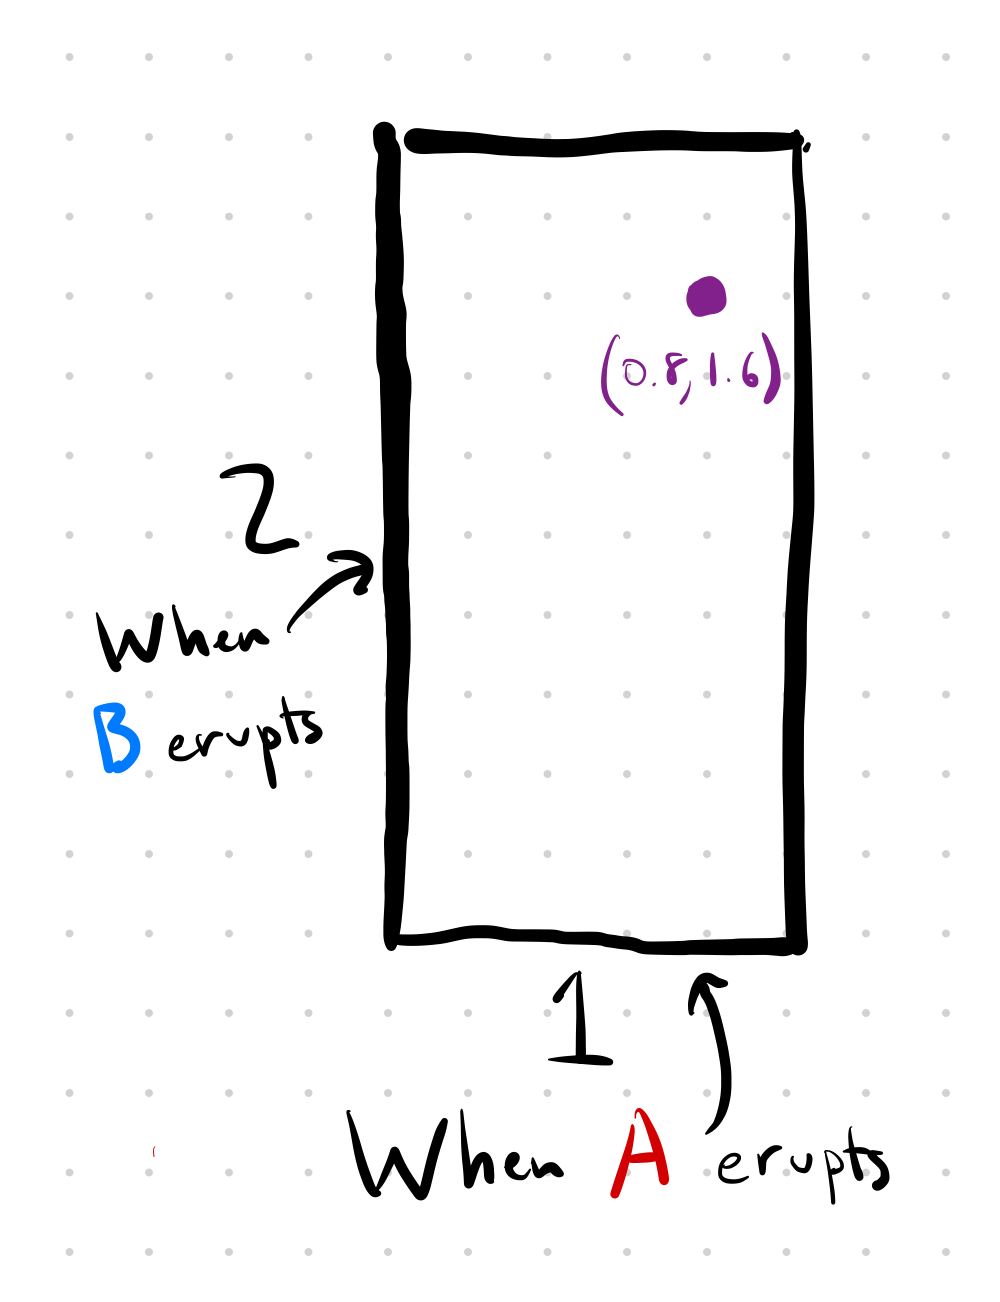 (0.8, 1.6)
2
When
B erupts
1
When A erupts